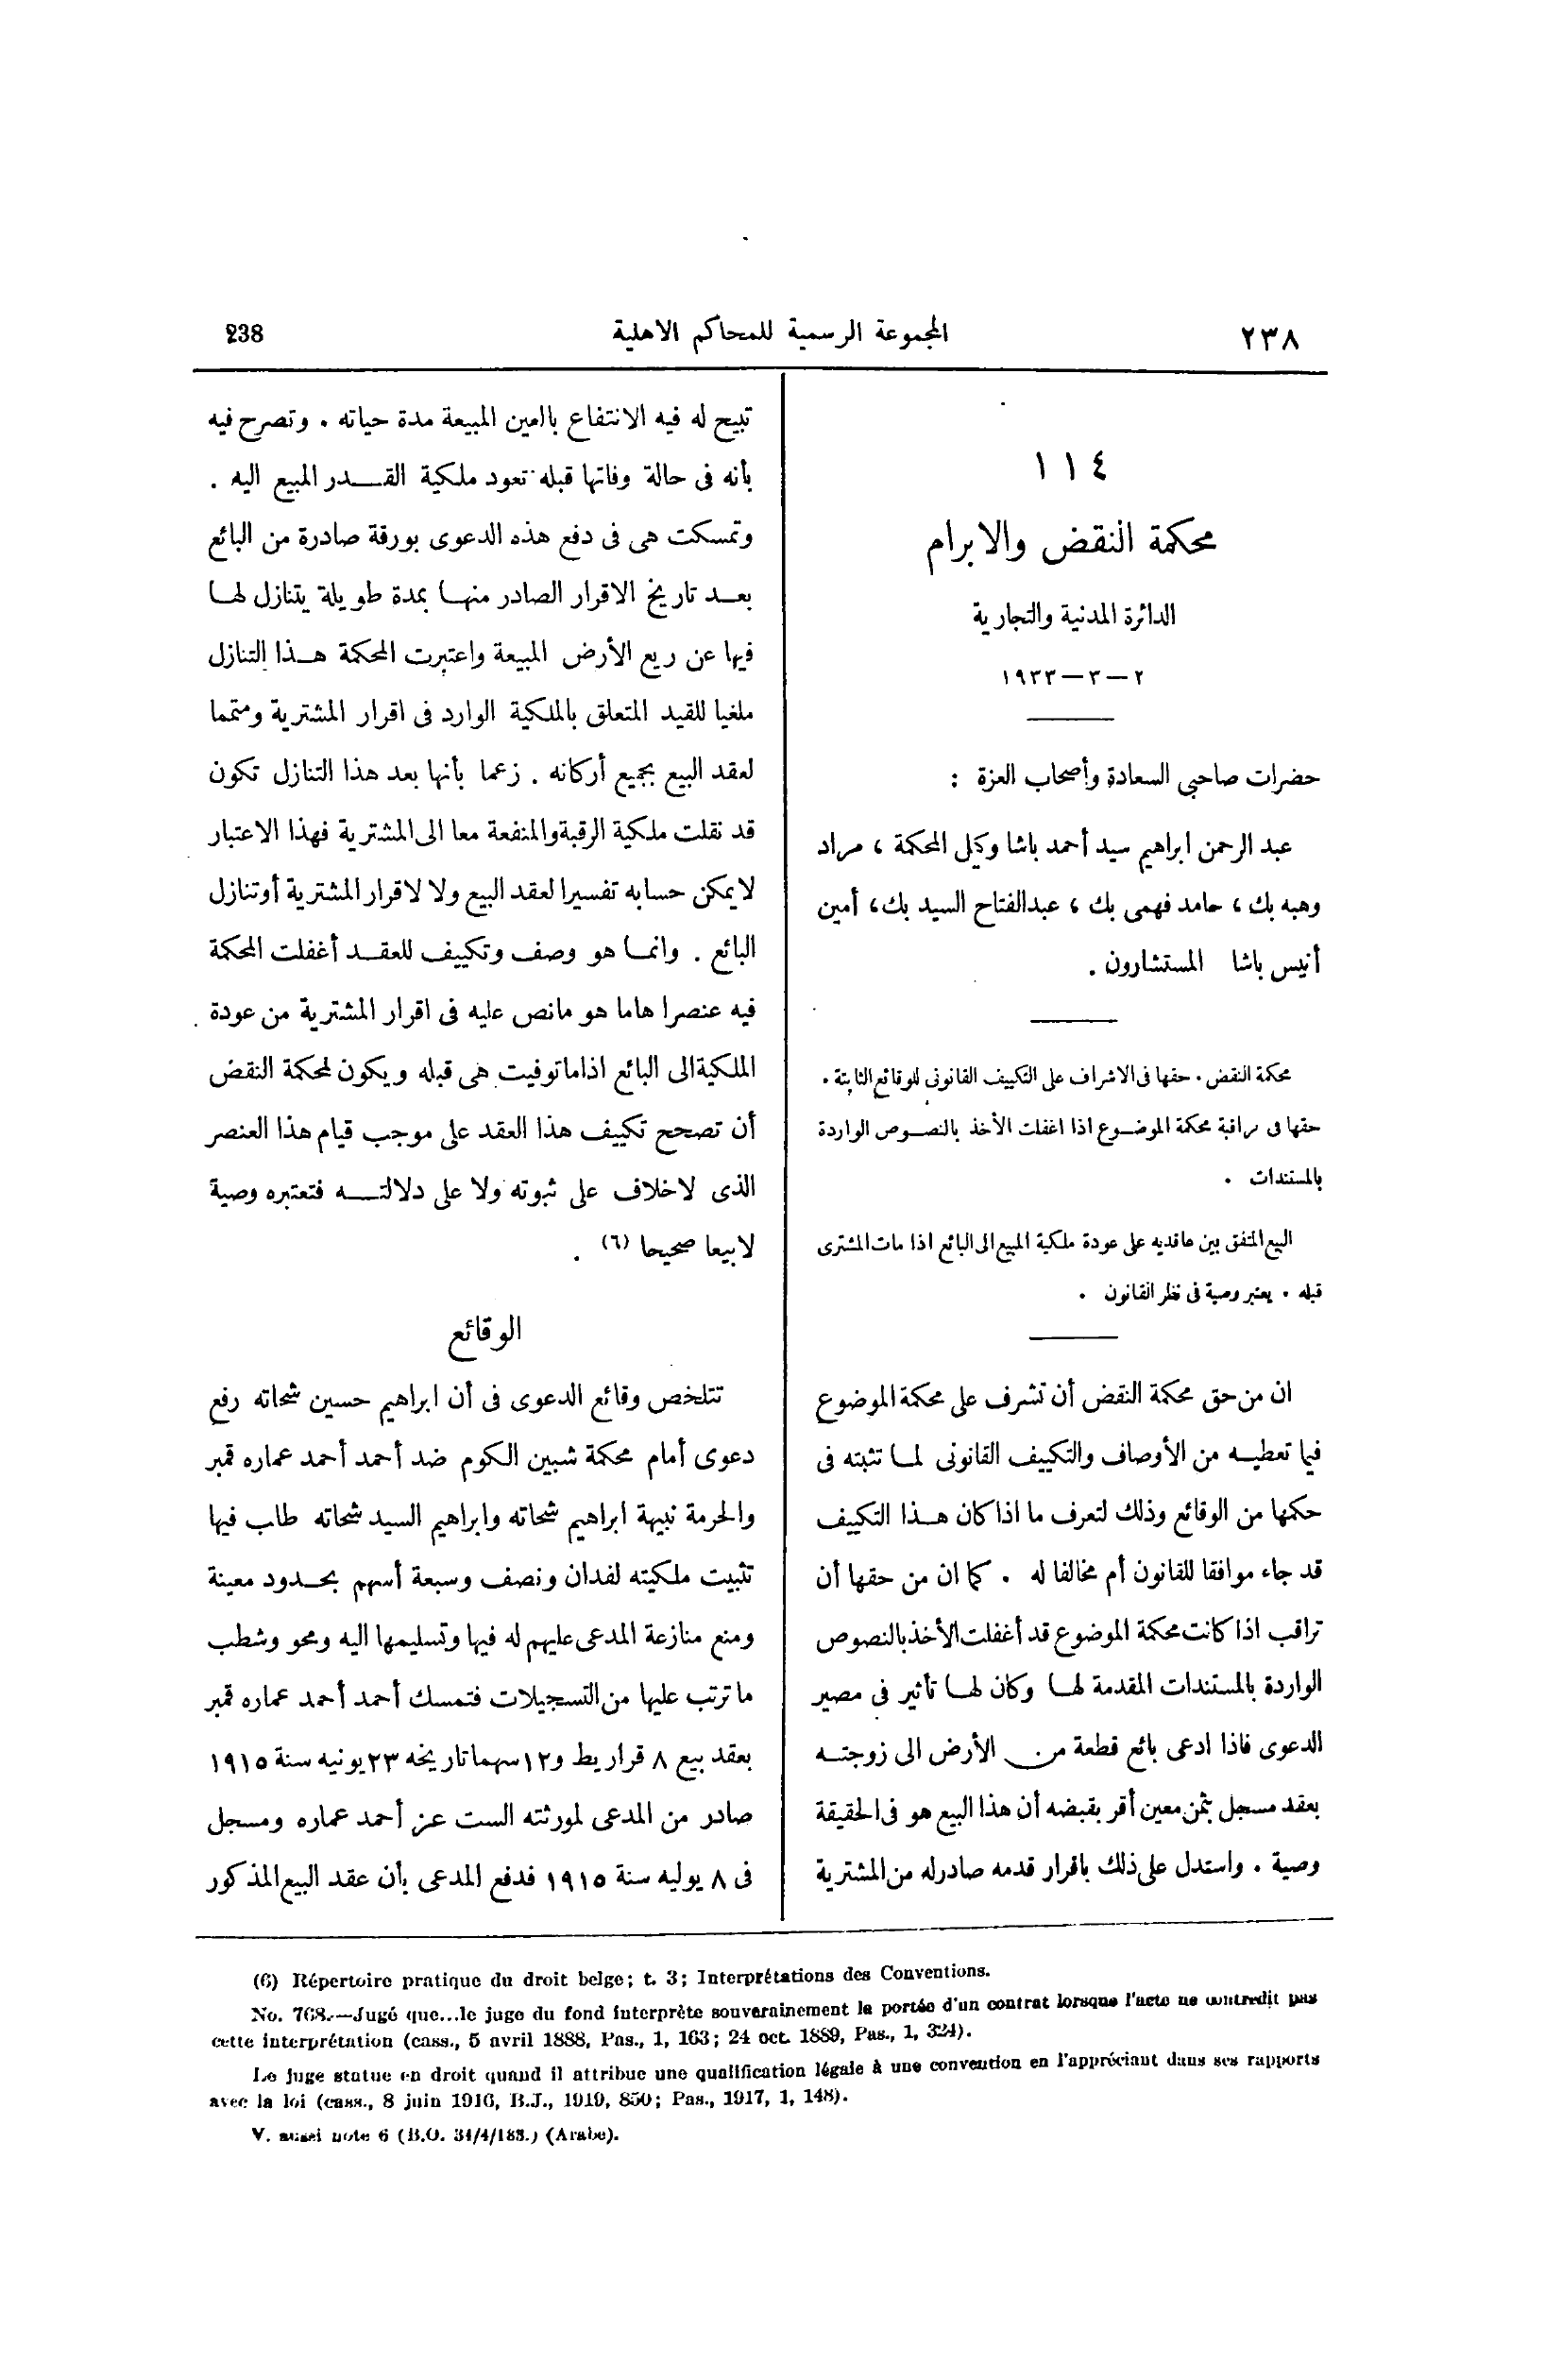 ٢٣٨
المجموعة الرسمية للمحاكم الاهلية
238
١١٤
محكمة النقض والابرام
الدائرة المدنية والتجارية
٢ — ٣ — ١٩٣٣
حضرات صاحبى السعادة وأصحاب العزة :
عبد الرحمن ابراهيم سيد أحمد باشا وكيل المحكمة ، مراد
وهبه بك ، حامد فهمى بك ، عبدالفتاح السيد بك، أمين
أنيس باشا المستشارون .
محكمة النقض . حقها فى الاشراف على التكييف القانونى للوقائع الثابتة .
حقها فى مراقبة محكمة الموضــوع اذا اغفلت الأخذ بالنصــوص الواردة
بالمستندات .
البيع المتفق بين عاقديه على عودة ملكية المبيع الى البائع اذا مات المشترى
قبله . يعتبر وصية فى نظر القانون .
ان من حق محكمة النقض أن تشرف على محكمة الموضوع
فيما تعطيــه من الأوصاف والتكييف القانونى لمـا تثبته فى
حكمها من الوقائع وذلك لتعرف ما اذا كان هــذا التكييف
قد جاء موافقا للقانون أم مخالفا له . كما ان من حقها أن
تراقب اذا كانت محكمة الموضوع قد أغفلت الأخذ بالنصوص
الواردة بالمستندات المقدمة لهـا وكان لهـا تأثير فى مصير
الدعوى فاذا ادعى بائع قطعة من الأرض الى زوجتــه
بعقد مسجل بثمن معين أقر بقبضه أن هذا البيع هو فى الحقيقة
وصية . واستدل على ذلك باقرار قدمه صادرله من المشترية
تبيح له فيه الانتفاع بالعين المبيعة مدة حياته . وتصرح فيه
بأنه فى حالة وفاتها قبله تعود ملكية القــدر المبيع اليه .
وتمسكت هى فى دفع هذه الدعوى بورقة صادرة من البائع
بعــد تاريخ الاقرار الصادر منهـا بمدة طويلة يتنازل لهـا
فيها عن ريع الأرض المبيعة واعتبرت المحكمة هــذا التنازل
ملغيا للقيد المتعلق بالملكية الوارد فى اقرار المشترية ومتمما
لعقد البيع بجميع أركانه . زعما بأنها بعد هذا التنازل تكون
قد نقلت ملكية الرقبة والمنفعة معا الى المشترية فهذا الاعتبار
لايمكن حسابه تفسيرا لعقد البيع ولا لاقرار المشترية أوتنازل
البائع . وانمـا هو وصف وتكييف للعقــد أغفلت المحكمة
فيه عنصرا هاما هو مانص عليه فى اقرار المشترية من عودة
الملكية الى البائع اذا ماتوفيت هى قبله ويكون لمحكمة النقض
أن تصحح تكييف هذا العقد على موجب قيام هذا العنصر
الذى لاخلاف على ثبوته ولا على دلالتــه فتعتبره وصية
لابيعا صحيحا (٦) .
الوقائع
تتلخص وقائع الدعوى فى أن ابراهيم حسين شحاته رفع
دعوى أمام محكمة شبين الكوم ضد أحمد أحمد عماره قمبر
والحرمة نبيهة ابراهيم شحاته وابراهيم السيد شحاته طلب فيها
تثبيت ملكيته لفدان ونصف وسبعة أسهم بحــدود معينة
ومنع منازعة المدعى عليهم له فيها وتسليمها اليه ومحو وشطب
ماترتب عليها من التسجيلات فتمسك أحمد أحمد عماره قمبر
بعقد بيع ٨ قراريط و١٢سهما تاريخه ٢٣يونيه سنة ١٩١٥
صادر من المدعى لمورثته الست عز أحمد عماره ومسجل
فى ٨ يوليه سنة ١٩١٥ فدفع المدعى بأن عقد البيع المذكور
(6) Répertoire pratique du droit belge; t. 3; Interprétations des Conventions.
No. 768.—Jugé que...le juge du fond interprète souverainement la portée d'un contrat lorsque l'acte ne contredit pas
cette interprétation (cass., 5 avril 1888, Pas., 1, 163; 24 oct. 1889, Pas., 1, 324).
Le juge statue en droit quand il attribue une qualification légale à une convention en l'appréciant dans ses rapports
avec la loi (cass., 8 juin 1916, B.J., 1919, 850; Pas., 1917, 1, 148).
V. aussi note 6 (B.O. 34/4/188.) (Arabe).